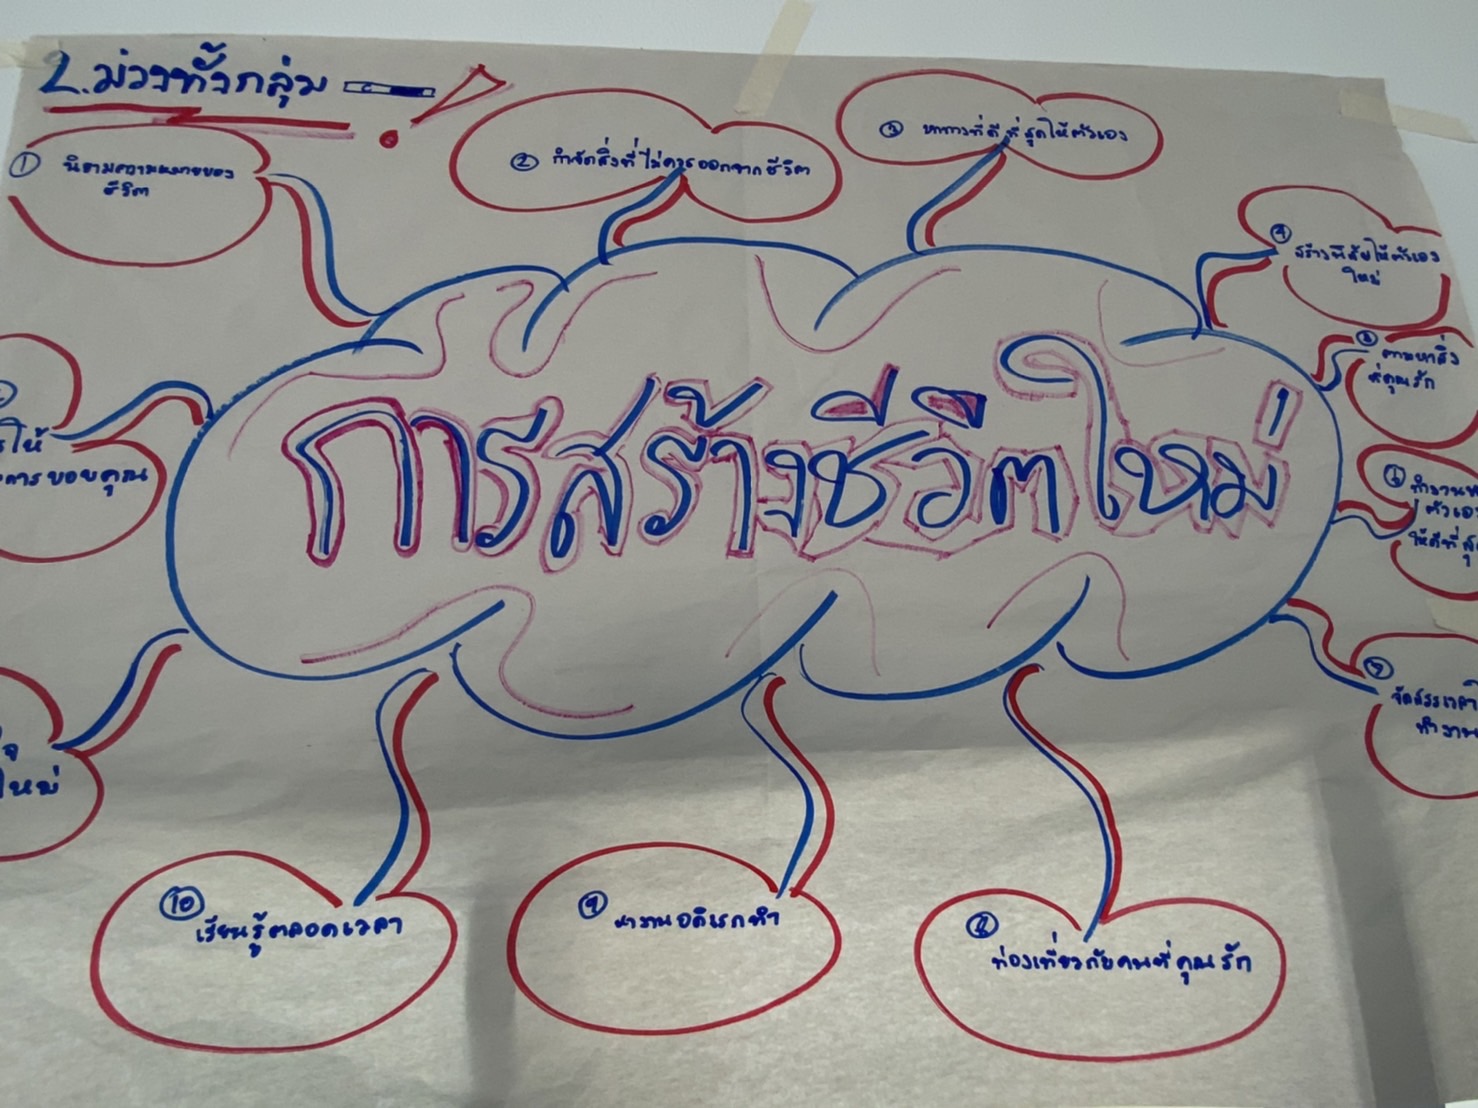 2.ม่วงทั้งกลุ่ม
① นิยามความหมายของ
ชีวิต
② กำจัดสิ่งที่ไม่ควรออกจากชีวิต
③ หาทางที่ดีที่สุดให้ตัวเอง
④ สร้างนิสัยให้ตัวเอง
ใหม่
⑤ ตามหาสิ่ง
ที่คุณรัก
⑥ ทำงาน
ตัวเอง
ให้ดีที่สุด
⑦
จัดสรรเวลา
ทำงาน
การสร้างชีวิตใหม่
ให้
การขอบคุณ
ใหม่
⑩
เรียนรู้ตลอดเวลา
⑨
หางานอดิเรกทำ
⑧
ท่องเที่ยวกับคนที่คุณรัก